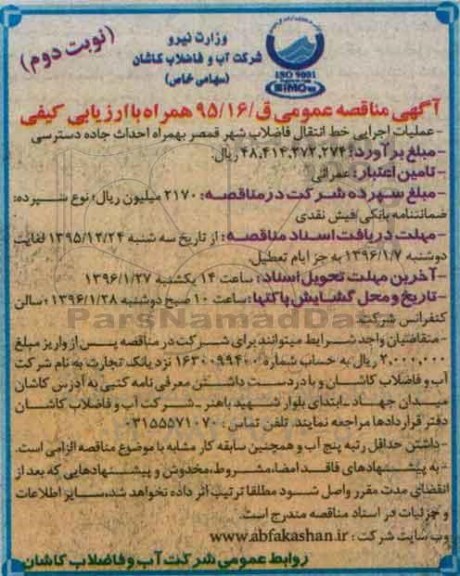 (نوبت دوم)
وزارت نیرو
شرکت آب و فاضلاب کاشان
(سهامی خاص)
ISO 9001
SIMQ
آگهی مناقصه عمومی ق/۹۵/۱۶ همراه با ارزیابی کیفی
-عملیات اجرایی خط انتقال فاضلاب شهر قمصر بهمراه احداث جاده دسترسی
-مبلغ برآورد: ۴۸,۴۱۴,۳۷۲,۲۷۴ ریال.
-تامین اعتبار: عمرانی
-مبلغ سپرده شرکت در مناقصه: ۲۱۷۰ میلیون ریال؛ نوع سپرده:
ضمانتنامه بانکی/فیش نقدی
-مهلت دریافت اسناد مناقصه: از تاریخ سه شنبه ۱۳۹۵/۱۲/۲۴ لغایت
دوشنبه ۱۳۹۶/۱/۷ به جز ایام تعطیل
-آخرین مهلت تحویل اسناد: ساعت ۱۴ یکشنبه ۱۳۹۶/۱/۲۷
-تاریخ و محل گشایش پاکتها: ساعت ۱۰ صبح دوشنبه ۱۳۹۶/۱/۲۸؛ سالن
کنفرانس شرکت
-متقاضیان واجد شرایط میتوانند برای شرکت در مناقصه پس از واریز مبلغ
۲,۰۰۰,۰۰۰ ریال به حساب شماره ۱۶۳۰۰۹۹۴۰۰ نزد بانک تجارت به نام شرکت
آب و فاضلاب کاشان و با در دست داشتن معرفی نامه کتبی به آدرس کاشان
میدان جهاد -ابتدای بلوار شهید باهنر -شرکت آب و فاضلاب کاشان
دفتر قراردادها مراجعه نمایند. تلفن تماس: ۰۳۱۵۵۵۷۱۰۷۰
-داشتن حداقل رتبه پنج آب و همچنین سابقه کار مشابه با موضوع مناقصه الزامی است.
-به پیشنهادهای فاقد امضا، مشروط، مخدوش و پیشنهادهایی که بعد از
انقضای مدت مقرر واصل شود مطلقا ترتیب اثر داده نخواهد شد، سایر اطلاعات
و جزئیات در اسناد مناقصه مندرج است.
وب سایت شرکت: www.abfakashan.ir
روابط عمومی شرکت آب و فاضلاب کاشان
ParsNamadData